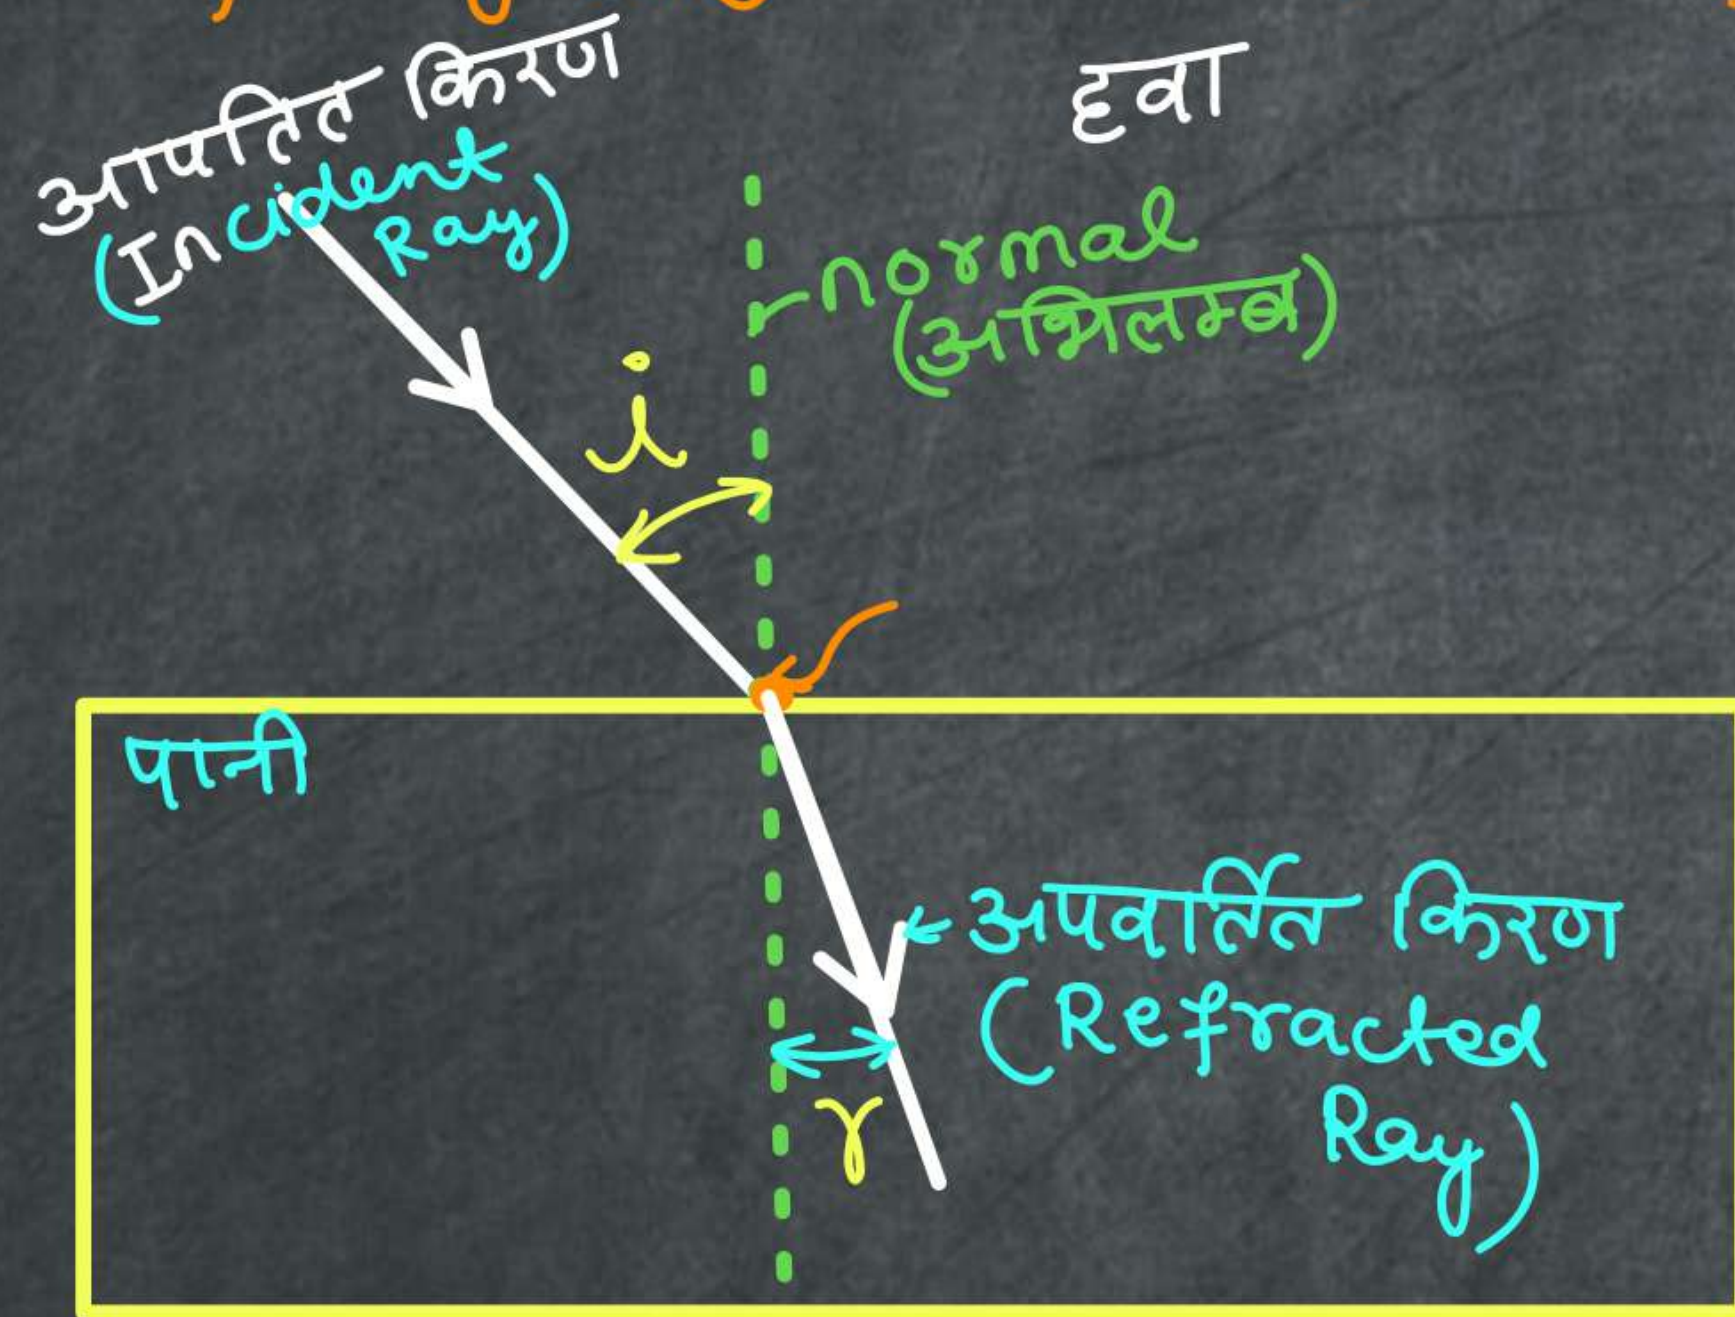 आपतित किरण
(Incident
Ray)
हवा
normal
(अभिलम्ब)
i
पानी
अपवर्तित किरण
(Refracted
Ray)
r